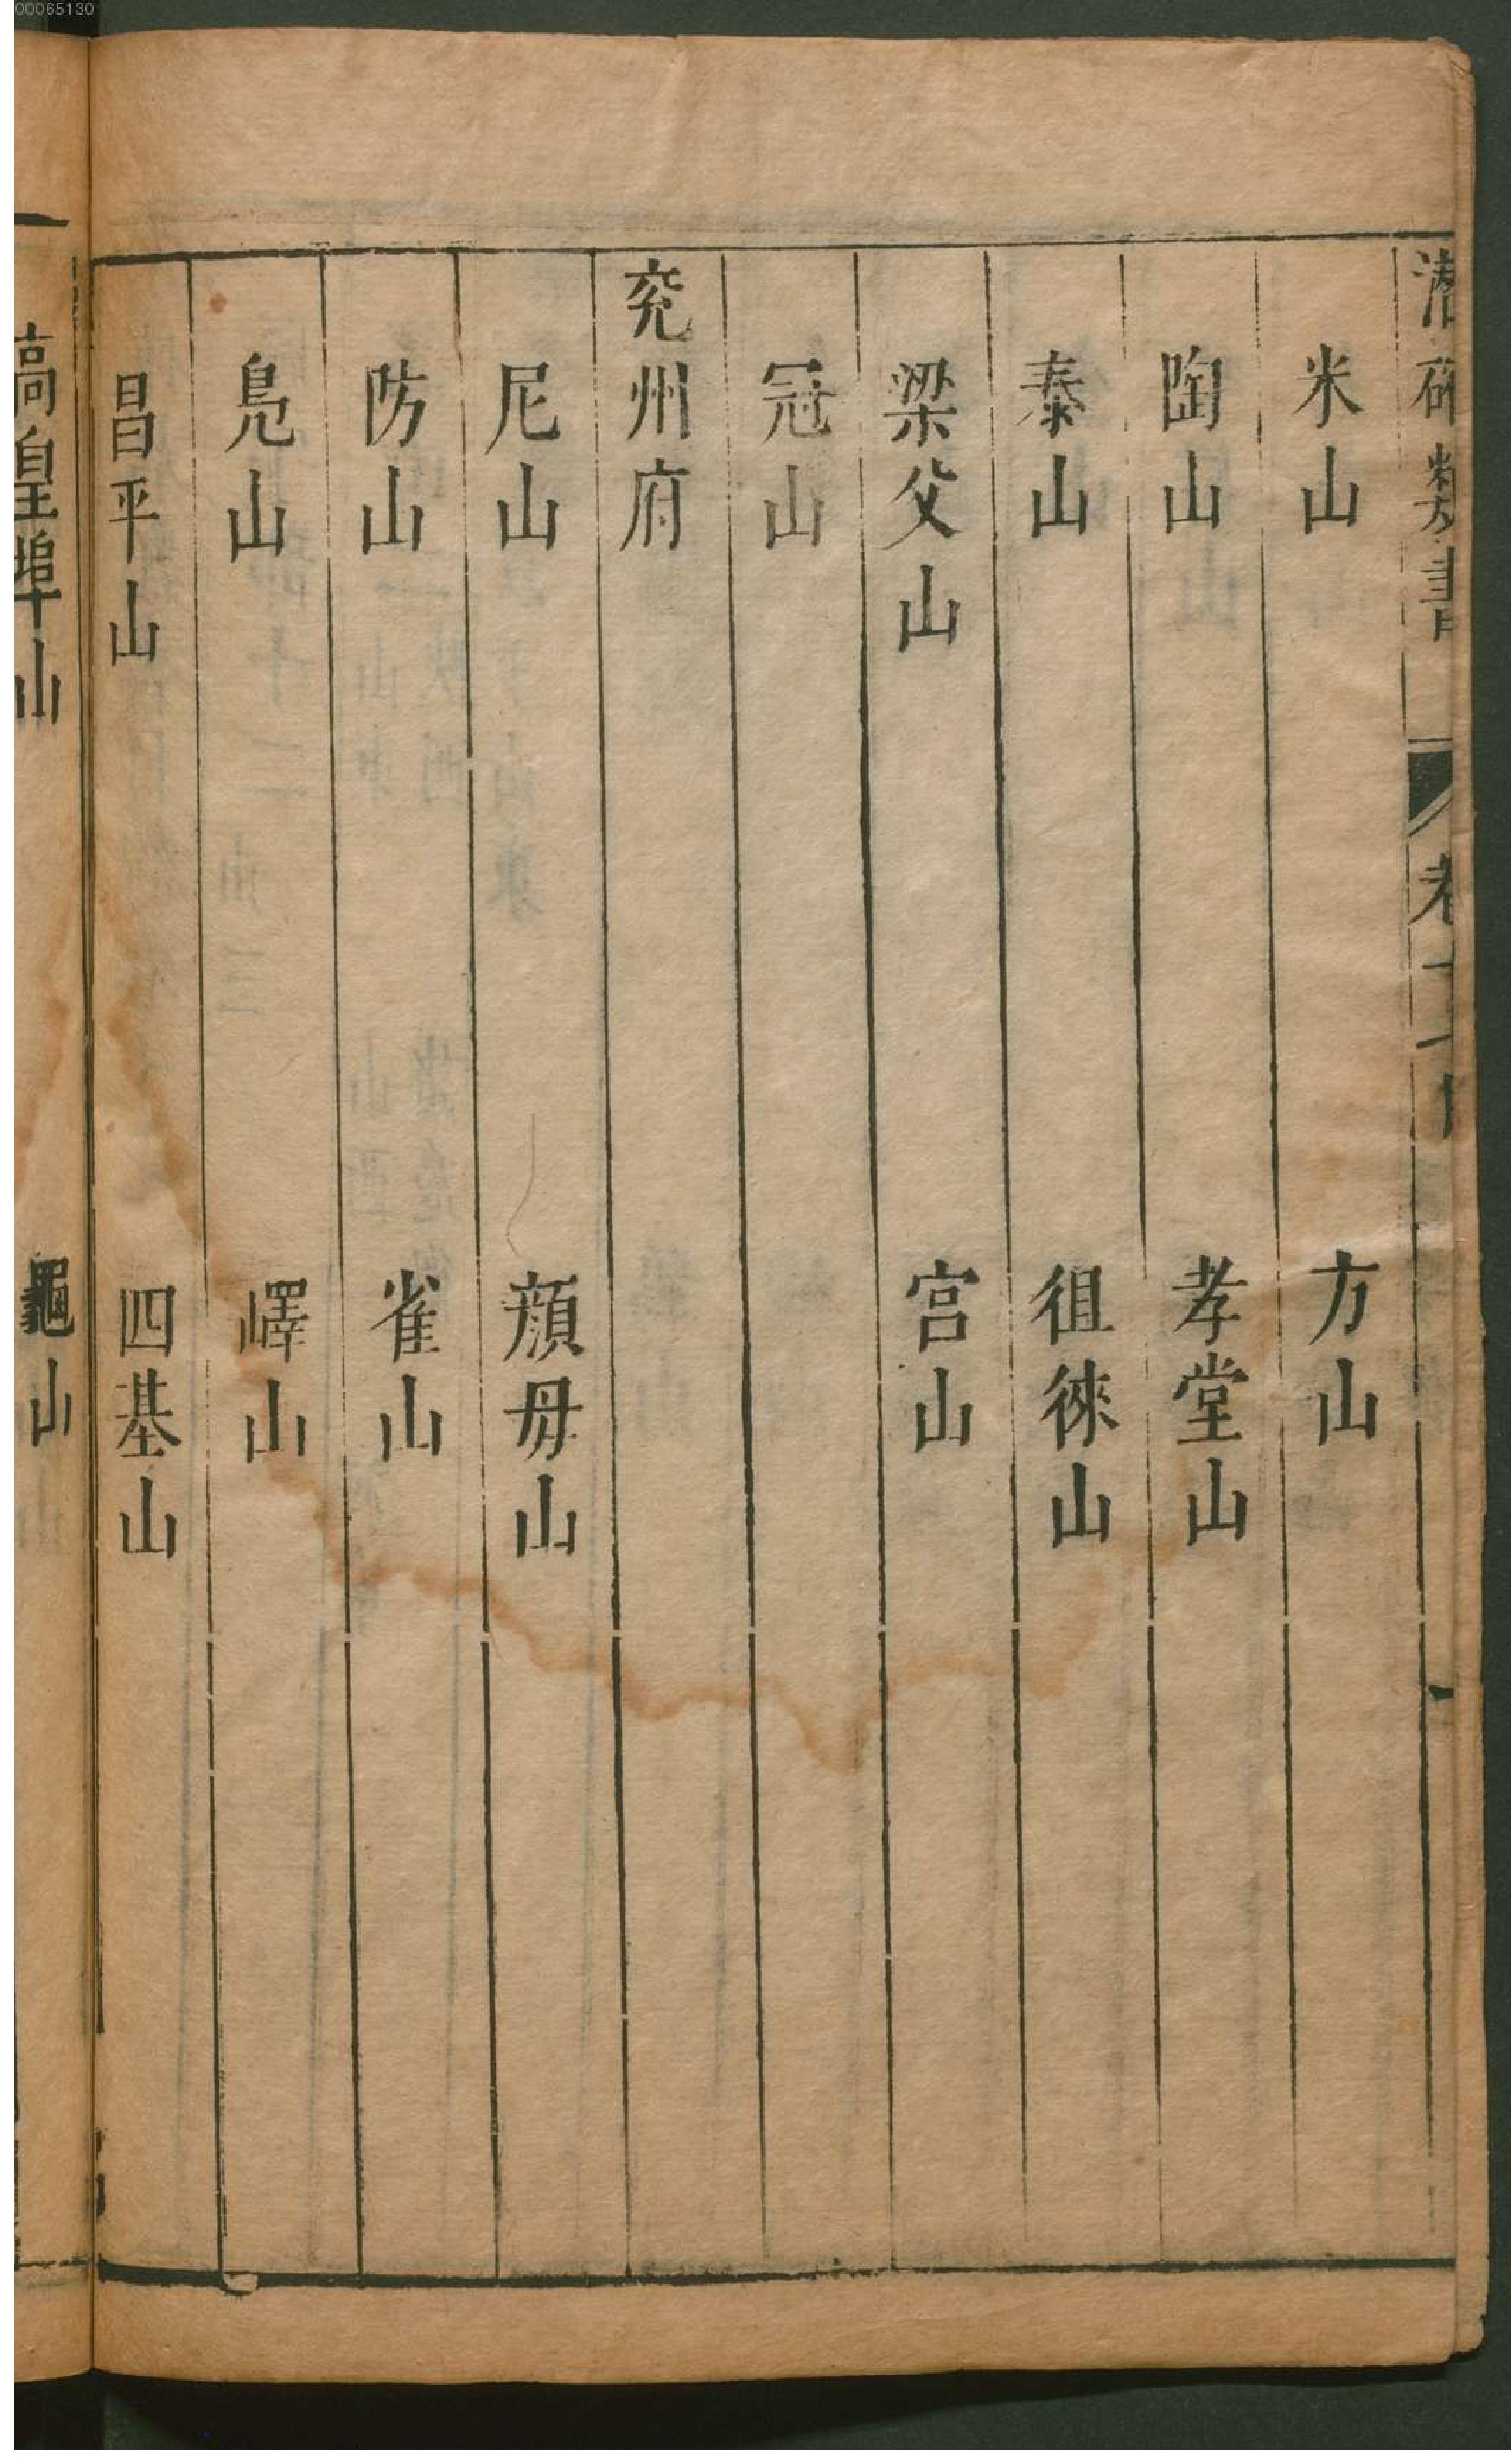 00065130
潜確類書
米山 方山
陶山 孝堂山
泰山 徂徠山
梁父山 宮山
冠山
兖州府
尼山 顔母山
防山 雀山
鳧山 嶧山
昌平山 四基山
高皇埠山 龜山